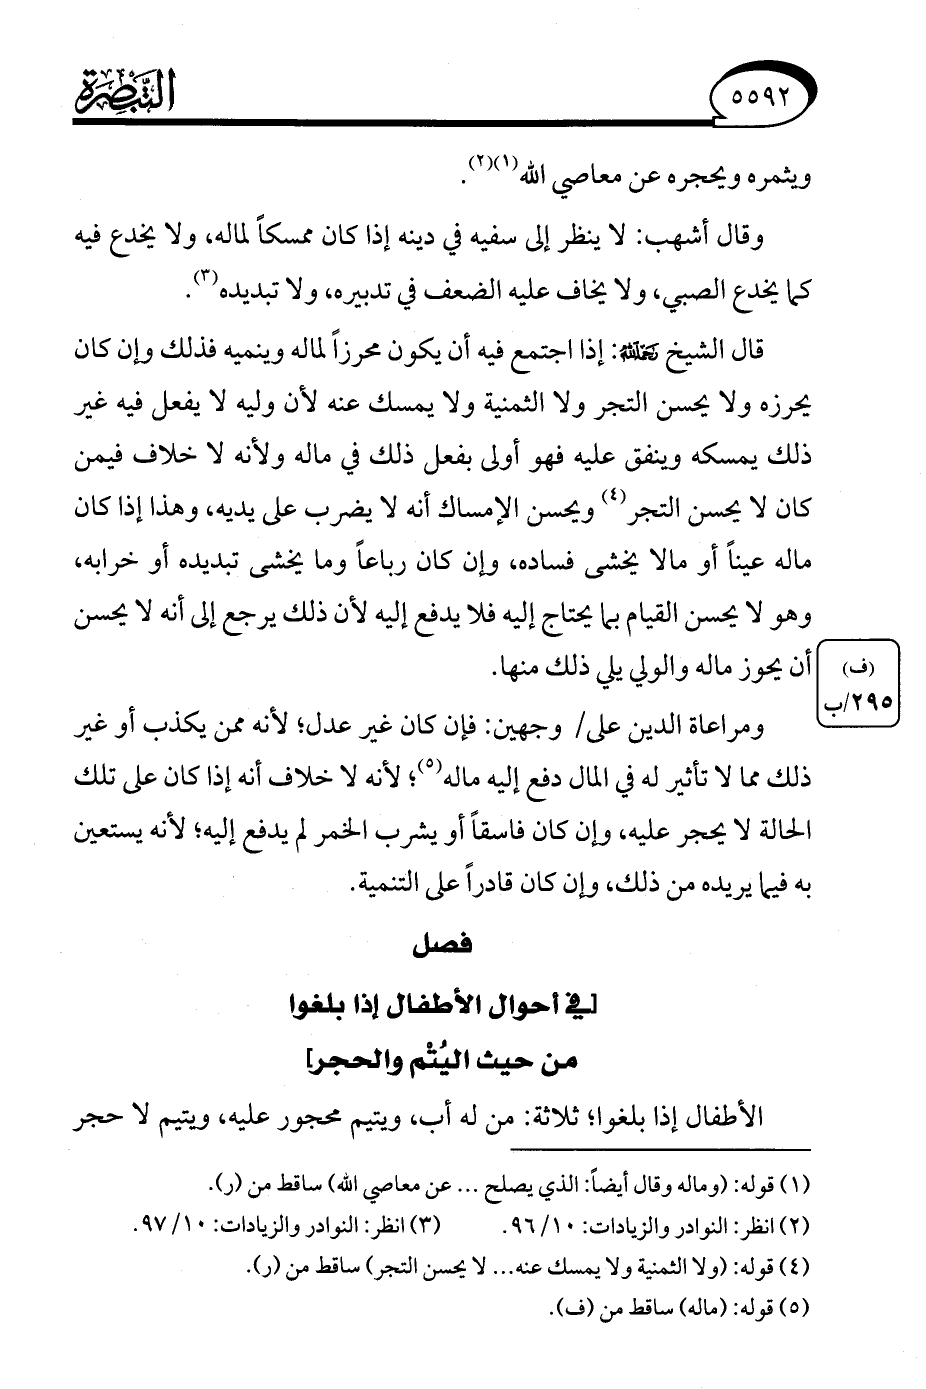 التبصرة
٥٥٩٢
ويثمره ويحجره عن معاصي الله(١)(٢).
وقال أشهب: لا ينظر إلى سفيه في دينه إذا كان ممسكاً لماله، ولا يخدع فيه
كما يخدع الصبي، ولا يخاف عليه الضعف في تدبيره، ولا تبديده(٣).
قال الشيخ رحمه الله: إذا اجتمع فيه أن يكون محرزاً لماله وينميه فذلك وإن كان
يحرزه ولا يحسن التجر ولا الثمنية ولا يمسك عنه لأن وليه لا يفعل فيه غير
ذلك يمسكه وينفق عليه فهو أولى بفعل ذلك في ماله ولأنه لا خلاف فيمن
كان لا يحسن التجر(٤) ويحسن الإمساك أنه لا يضرب على يديه، وهذا إذا كان
ماله عيناً أو مالا يخشى فساده، وإن كان رباعاً وما يخشى تبديده أو خرابه،
وهو لا يحسن القيام بما يحتاج إليه فلا يدفع إليه لأن ذلك يرجع إلى أنه لا يحسن
أن يحوز ماله والولي يلي ذلك منها.
(ف)
٢٩٥/ب
ومراعاة الدين على/ وجهين: فإن كان غير عدل؛ لأنه ممن يكذب أو غير
ذلك مما لا تأثير له في المال دفع إليه ماله(٥)؛ لأنه لا خلاف أنه إذا كان على تلك
الحالة لا يحجر عليه، وإن كان فاسقاً أو يشرب الخمر لم يدفع إليه؛ لأنه يستعين
به فيما يريده من ذلك، وإن كان قادراً على التنمية.
فصل
[في أحوال الأطفال إذا بلغوا
من حيث اليُتْم والحجر]
الأطفال إذا بلغوا؛ ثلاثة: من له أب، ويتيم محجور عليه، ويتيم لا حجر
(١) قوله: (وماله وقال أيضاً: الذي يصلح ... عن معاصي الله) ساقط من (ر).
(٢) انظر: النوادر والزيادات: ١٠/ ٩٦. (٣) انظر: النوادر والزيادات: ١٠/ ٩٧.
(٤) قوله: (ولا الثمنية ولا يمسك عنه... لا يحسن التجر) ساقط من (ر).
(٥) قوله: (ماله) ساقط من (ف).